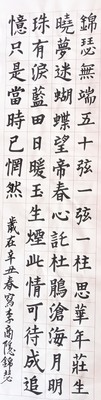 錦瑟無端五十弦一弦一柱思華年莊生
曉夢迷蝴蝶望帝春心託杜鵑滄海月明
珠有淚藍田日暖玉生煙此情可待成追
憶只是當時已惘然
歲在辛丑春寫李商隱錦瑟